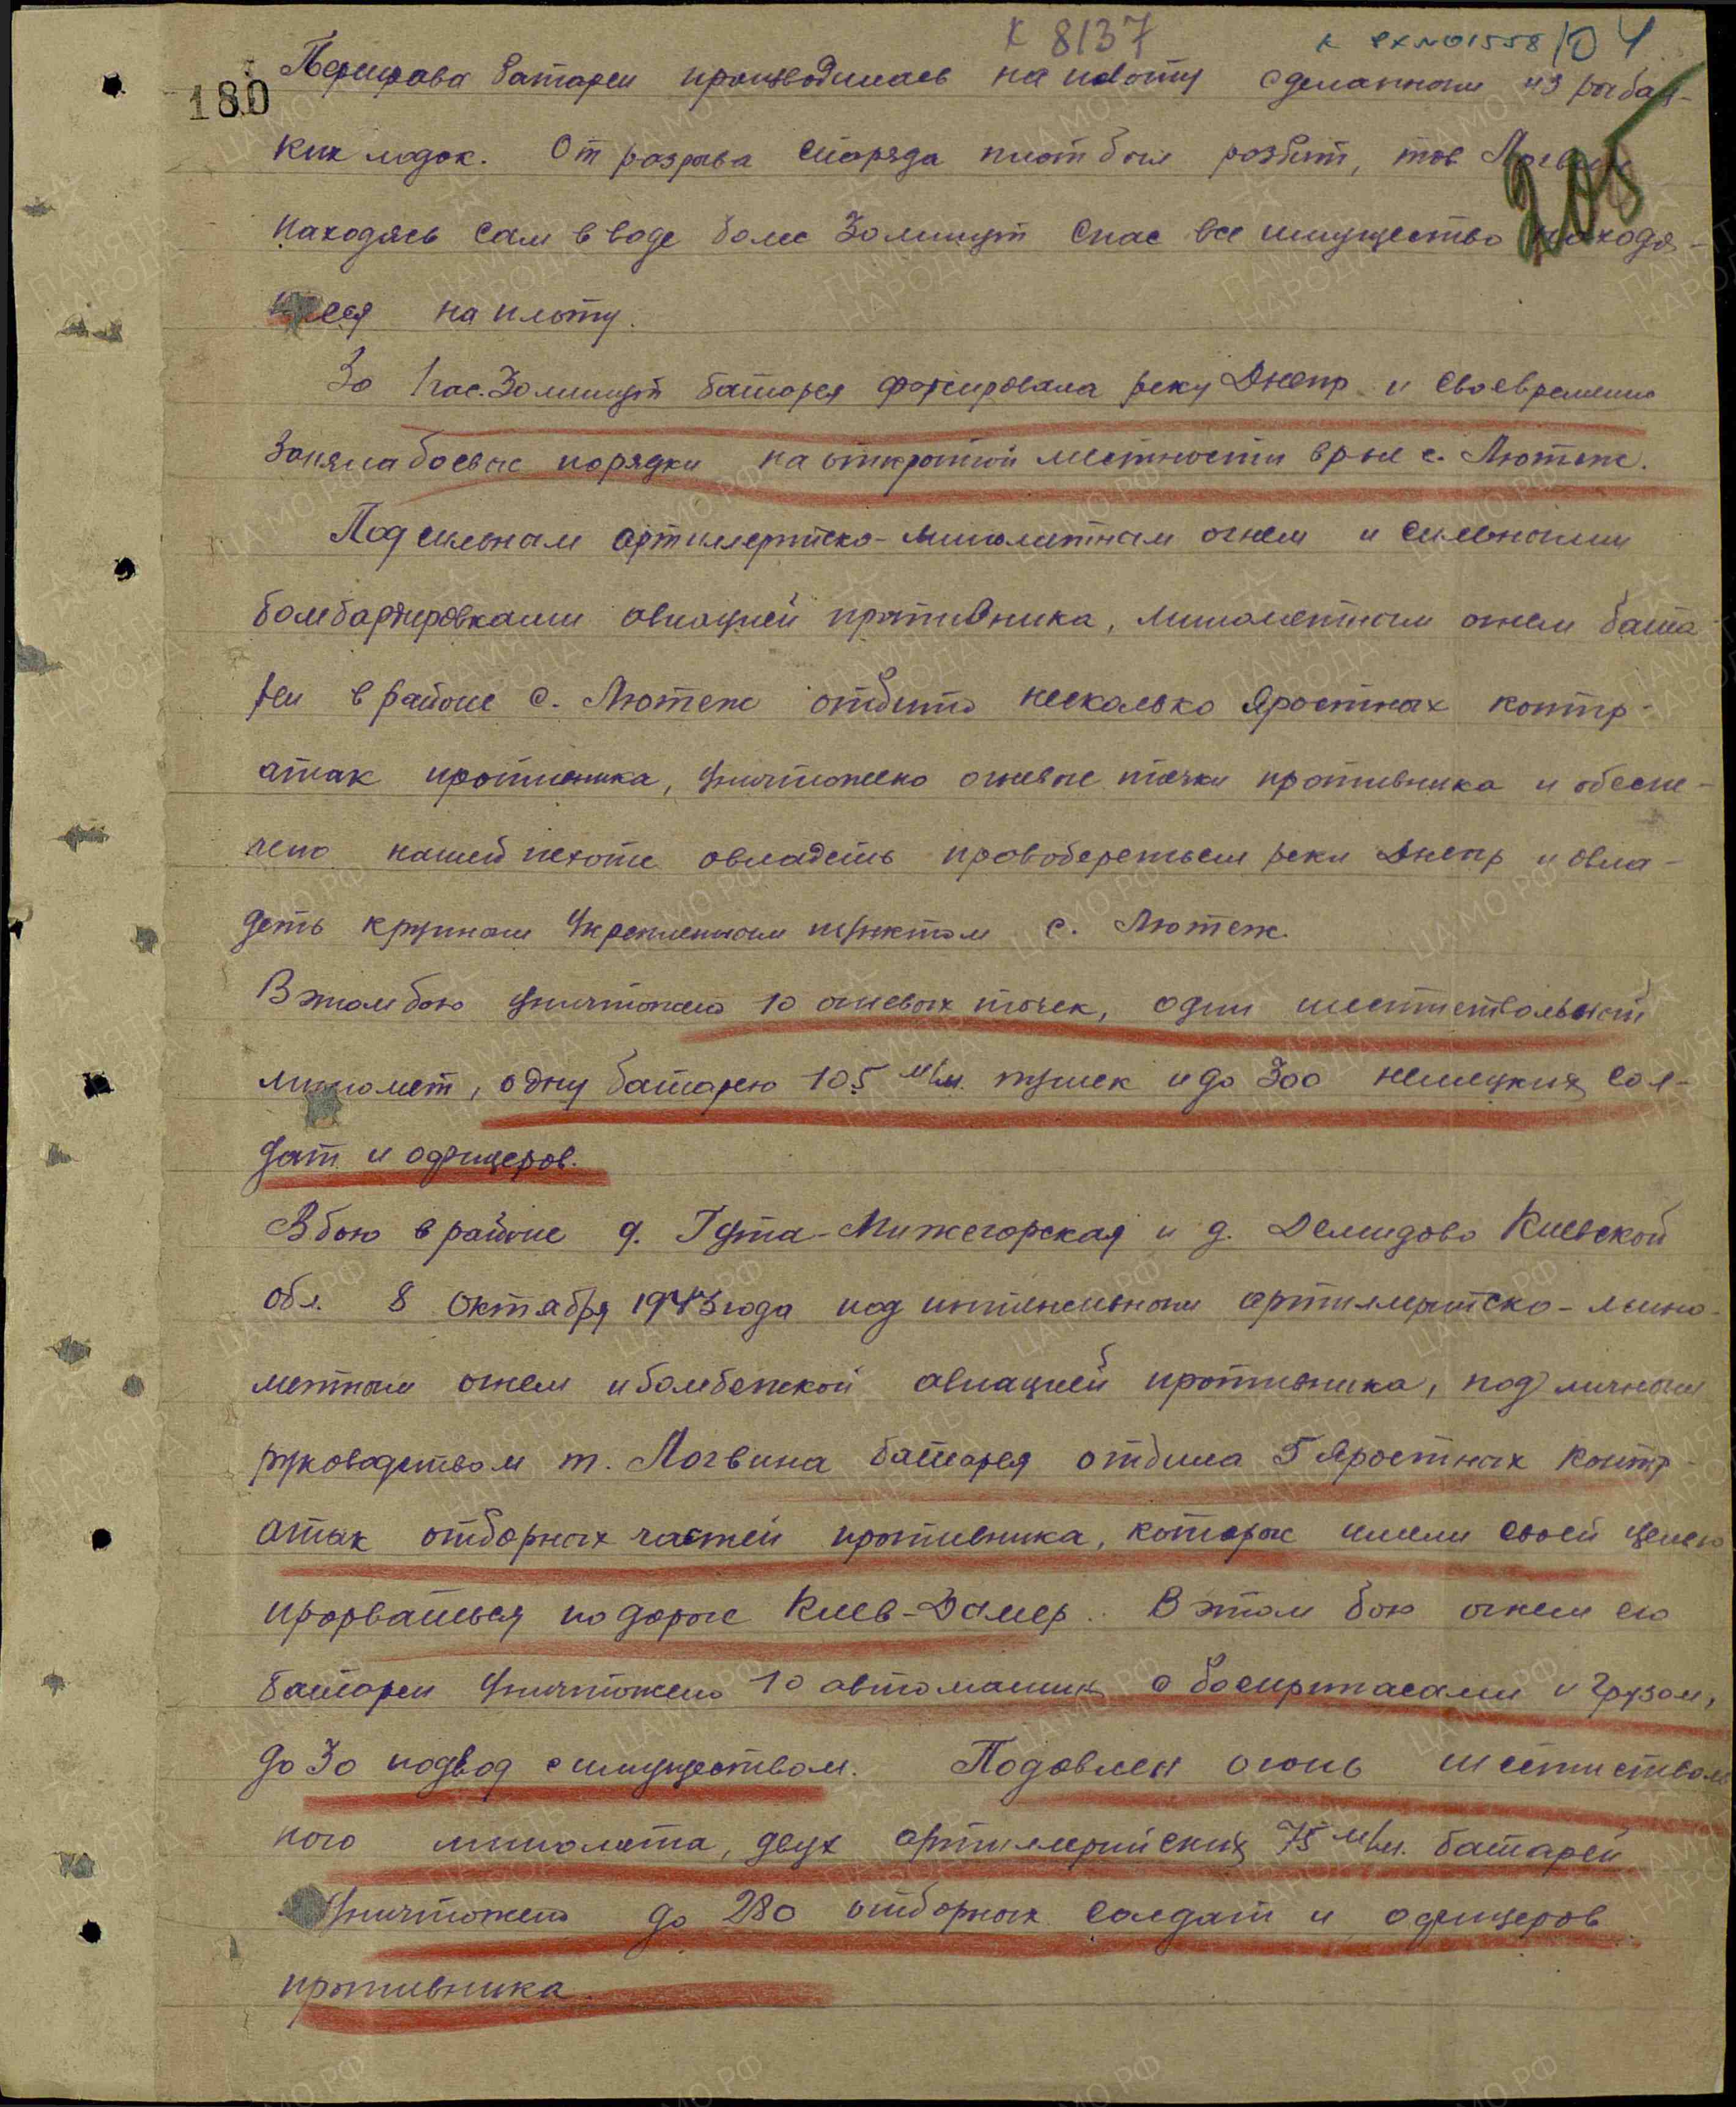 К 8137
к вх№01558 104
180
205
Переправа батареи производилась на плоту сделанным из рыбац-
ких лодок. От разрыва снаряда плот был разбит, тов. Логвин
находясь сам в воде более 30 минут спас все имущество находя-
щееся на плоту.
За 1 час. 30 минут батарея форсировала реку Днепр и своевременно
заняла боевые порядки на открытой местности в р-не с. Лютеж.
Под сильным артиллерийско-минометным огнем и сильными
бомбардировками авиацией противника, минометным огнем бата-
реи в районе с. Лютеж отбито несколько яростных контр-
атак противника, уничтожено огневые точки противника и обеспе-
чено нашей пехоте овладеть правобережьем реки Днепр и овла-
деть крупным укрепленным пунктом с. Лютеж.
В этом бою уничтожено 10 огневых точек, один шестиствольный
миномет, одну батарею 105 м/м. пушек и до 300 немецких сол-
дат и офицеров.
В бою в районе д. Гута-Межегорская и д. Демидово Киевской
обл. 8 октября 1943 года под интенсивным артиллерийско-мино-
метным огнем и бомбежкой авиацией противника, под личным
руководством т. Логвина батарея отбила 5 яростных контр-
атак отборных частей противника, которые имели своей целью
прорваться по дороге Киев-Дымер. В этом бою огнем его
батареи уничтожено 10 автомашин с боеприпасами и грузом,
до 30 подвод с имуществом. Подавлен огонь шестистволь-
ного миномета, двух артиллерийских 75 м/м. батарей
уничтожено до 280 отборных солдат и офицеров
противника.